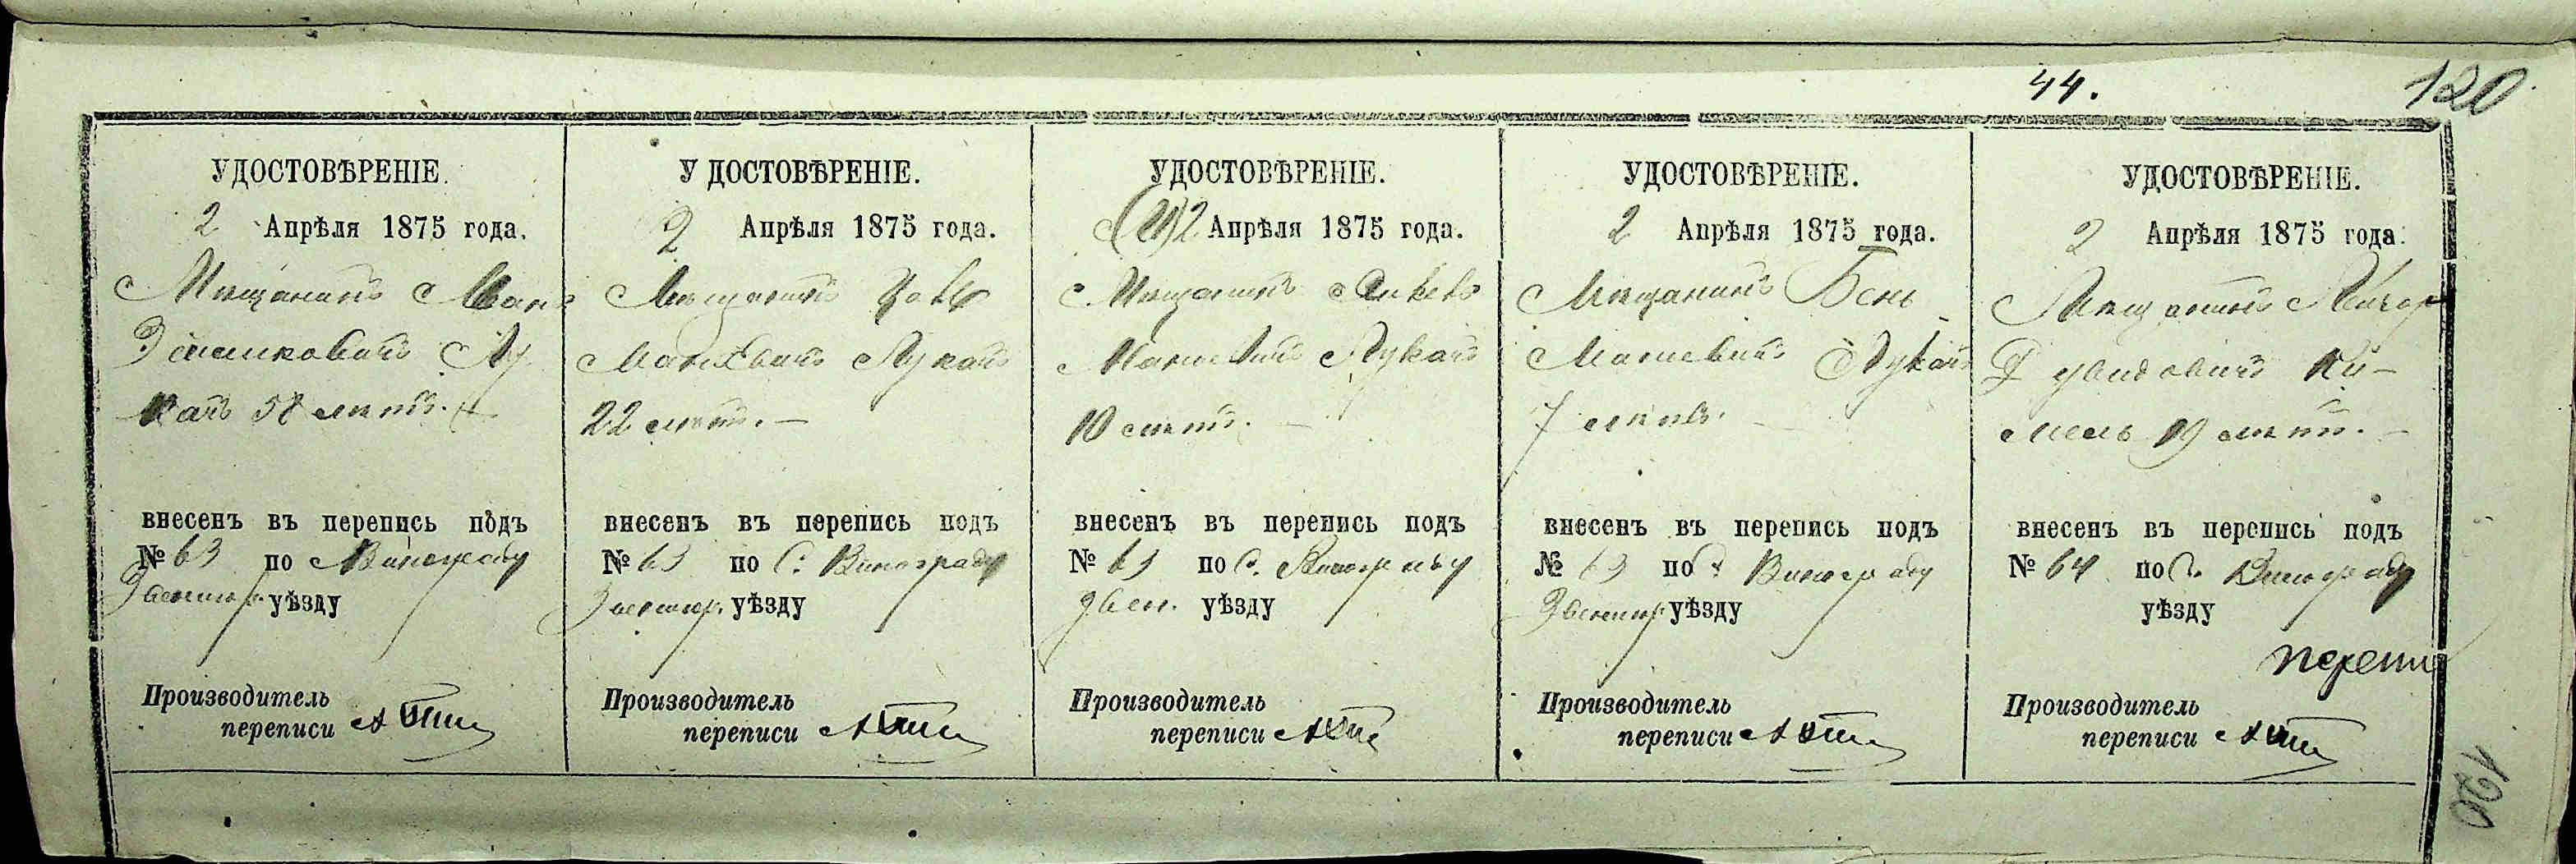 44.
120
УДОСТОВѢРЕНІЕ.
2 Апрѣля 1875 года.
Мѣщанинъ
Лу
качъ 58 лѣтъ. —
внесенъ въ перепись подъ
№ 63 по Винограду
Звенигор. уѣзду
Производитель
переписи
У ДОСТОВѢРЕНІЕ.
2 Апрѣля 1875 года.
Мѣщанинъ
Лукачъ
22 лѣтъ. —
внесенъ въ перепись подъ
№ 63 по С. Винограду
Звенигор. уѣзду
Производитель
переписи
УДОСТОВѢРЕНІЕ.
2 Апрѣля 1875 года.
Мѣщанинъ
Лукачъ
10 лѣтъ. —
внесенъ въ перепись подъ
№ 63 по С. Винограду
Звен. уѣзду
Производитель
переписи
УДОСТОВѢРЕНІЕ.
2 Апрѣля 1875 года.
Мѣщанинъ Бень
Лукачъ
7 лѣтъ. —
внесенъ въ перепись подъ
№ 63 по С. Винограду
Звенигор. уѣзду
Производитель
переписи
УДОСТОВѢРЕНІЕ.
2 Апрѣля 1875 года.
Мѣщанинъ
Ки-
мель 19 лѣтъ. —
внесенъ въ перепись подъ
№ 64 по С. Винограду
уѣзду
Производитель
переписи
120